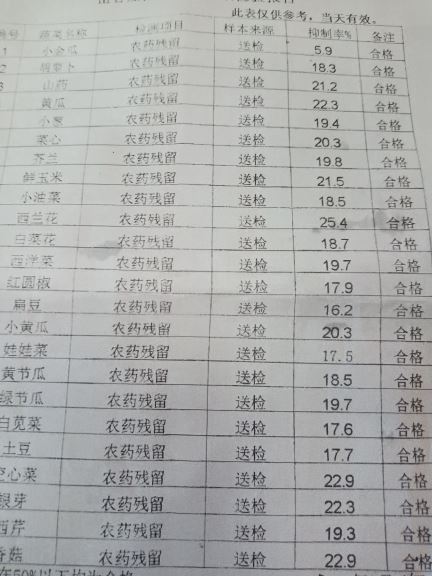 此表仅供参考，当天有效。
编号 蔬菜名称 检测项目 样本来源 抑制率% 备注
1 小金瓜 农药残留 送检 5.9 合格
2 胡萝卜 农药残留 送检 18.3 合格
3 山药 农药残留 送检 21.2 合格
黄瓜 农药残留 送检 22.3 合格
小葱 农药残留 送检 19.4 合格
菜心 农药残留 送检 20.3 合格
芥兰 农药残留 送检 19.8 合格
鲜玉米 农药残留 送检 21.5 合格
小油菜 农药残留 送检 18.5 合格
西兰花 农药残留 送检 25.4 合格
白菜花 农药残留 送检 18.7 合格
西洋菜 农药残留 送检 19.7 合格
红圆椒 农药残留 送检 17.9 合格
扁豆 农药残留 送检 16.2 合格
小黄瓜 农药残留 送检 20.3 合格
娃娃菜 农药残留 送检 17.5 合格
黄节瓜 农药残留 送检 18.5 合格
绿节瓜 农药残留 送检 19.7 合格
白苋菜 农药残留 送检 17.6 合格
土豆 农药残留 送检 17.7 合格
空心菜 农药残留 送检 22.9 合格
银芽 农药残留 送检 22.3 合格
西芹 农药残留 送检 19.3 合格
香菇 农药残留 送检 22.9 合格
在50%以下均为合格